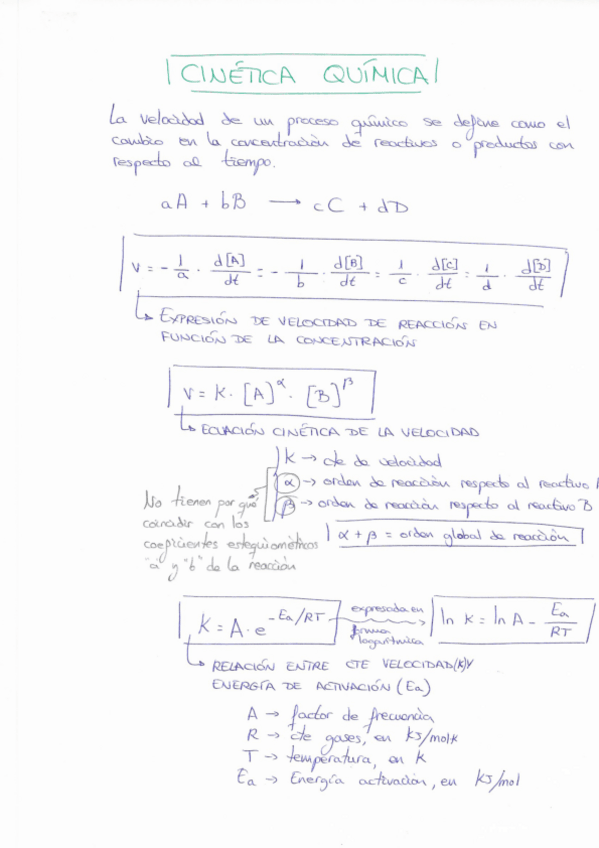 CINÉTICA QUÍMICA
La velocidad de un proceso químico se define como el
cambio en la concentración de reactivos o productos con
respecto al tiempo.
aA + bB → cC + dD
v = - 1/a · d[A]/dt = - 1/b · d[B]/dt = 1/c · d[C]/dt = 1/d · d[D]/dt
↳ EXPRESIÓN DE VELOCIDAD DE REACCIÓN EN
FUNCIÓN DE LA CONCENTRACIÓN
v = K · [A]^α · [B]^β
↳ ECUACIÓN CINÉTICA DE LA VELOCIDAD
K → cte de velocidad
α → orden de reacción respecto al reactivo
β → orden de reacción respecto al reactivo B
α + β = orden global de reacción
No tienen por qué
coincidir con los
coeficientes estequiométricos
"a" y "b" de la reacción
K = A · e^(-Ea/RT) expresada en forma logarítmica ln K = ln A - Ea/RT
↳ RELACIÓN ENTRE CTE VELOCIDAD (K) Y
ENERGÍA DE ACTIVACIÓN (Ea)
A → factor de frecuencia
R → cte gases, en KJ/molK
T → temperatura, en K
Ea → Energía activación, en KJ/mol